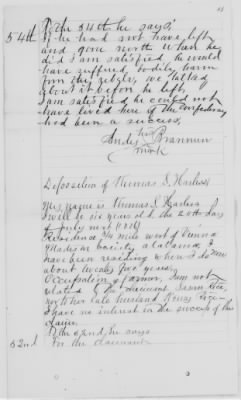 To the 54th he says:
54th If he had not have left
and gone north when he
did I am satisfied he would
have suffered bodily harm
from the rebels, we talked
about it before he left,
I am satisfied he could not
have lived here if the Confederacy
had been a success.
Andy his Brannun
mark
Deposition of Thomas S. Harless
My name is Thomas S. Harless
I will be six years old the 20th day
of July next (1876)
Residence 3/4 miles west of Vienna
Madison County Alabama, I
have been residing where I do now
about twenty two years,
Occupation farmer, I am not
related to the claimant
nor her late husband Henry
I have no interest in the success of this
claim.
To the 52nd, he says
52nd For the claimant